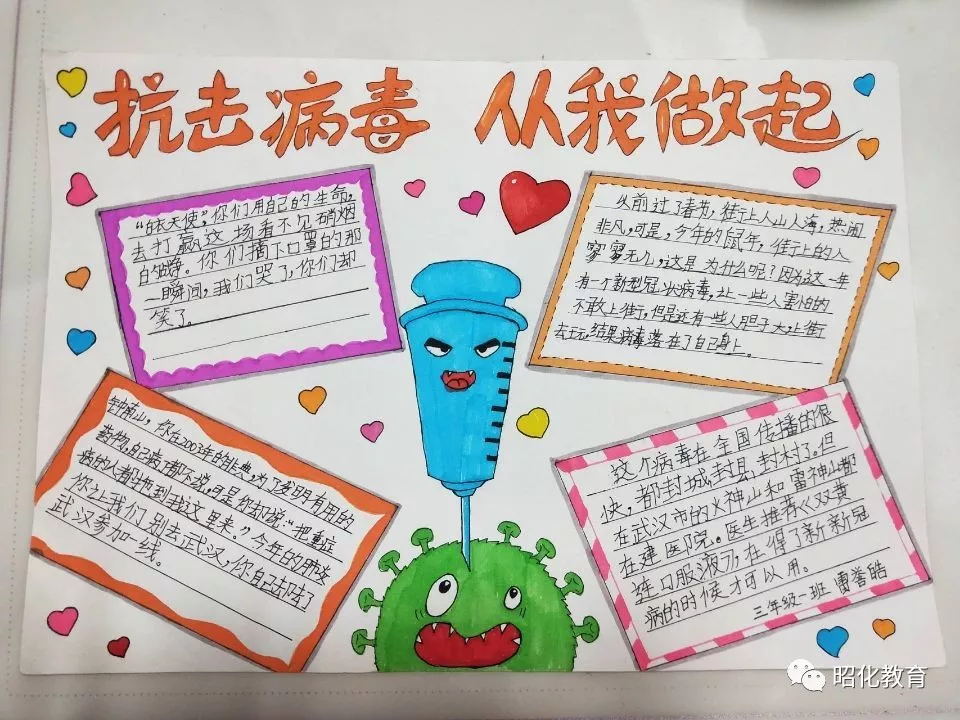 抗击病毒 从我做起
"白衣天使",你们用自己的生命,
去打赢这场看不见硝烟
的战争。你们摘下口罩的那
一瞬间,我们哭了,你们却
笑了。
从前过了春节,街上人山人海,热闹
非凡,可是,今年的鼠年,街上的人
寥寥无几,这是为什么呢?因为这一年
有一个新型冠状病毒,让一些人害怕的
不敢上街,但是还有一些人胆子大,上街
去玩,结果病毒落在了自己身上。
钟南山,你在2003年的非典,为了发明有用的
药物,自己病了都不说,可是你却说:"把重症
病的人都拖到我这里来。"今年的肺炎
你让我们别去武汉,你自己却去了
武汉参加一线。
这个病毒在全国传播的很
快,都封城,封县,封村了。但
在武汉市的火神山和雷神山都
在建医院。医生推荐《双黄
连口服液》,在得了新新冠
病的时候才可以用。
三年级一班 雷誉皓
昭化教育